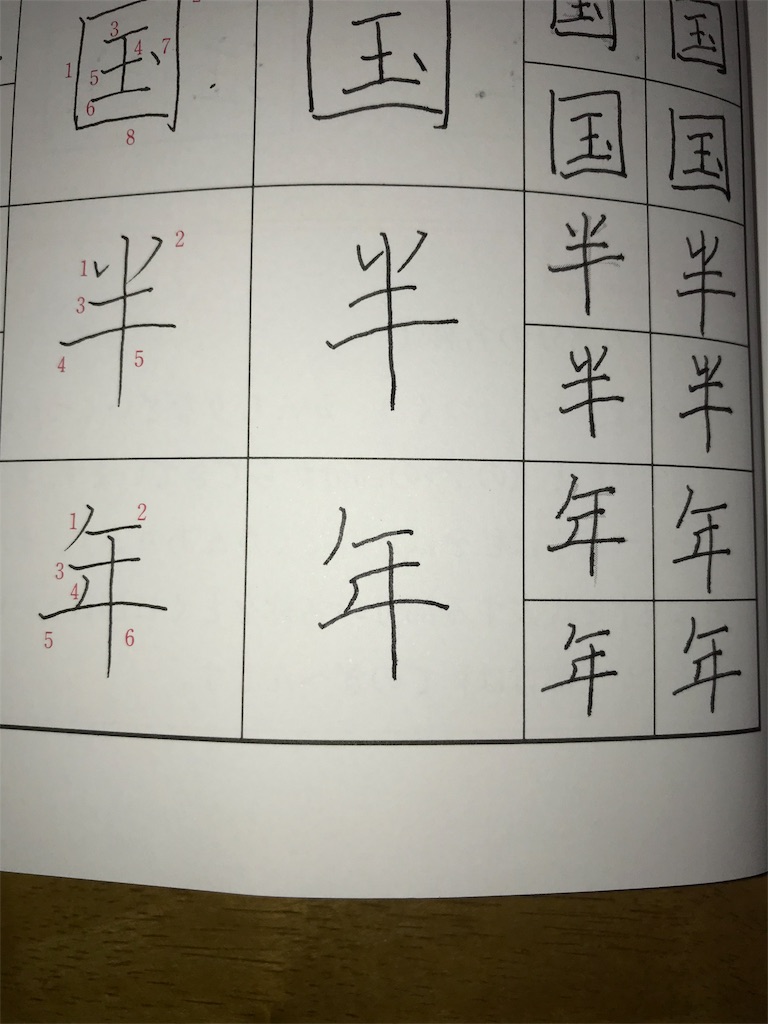 3
4 7
1 国 国 国 国
5
6
8
国 国
1 半 2 半 半 半
3
4 5
半 半
1 年 2 年 年 年
3
4
5 6
年 年